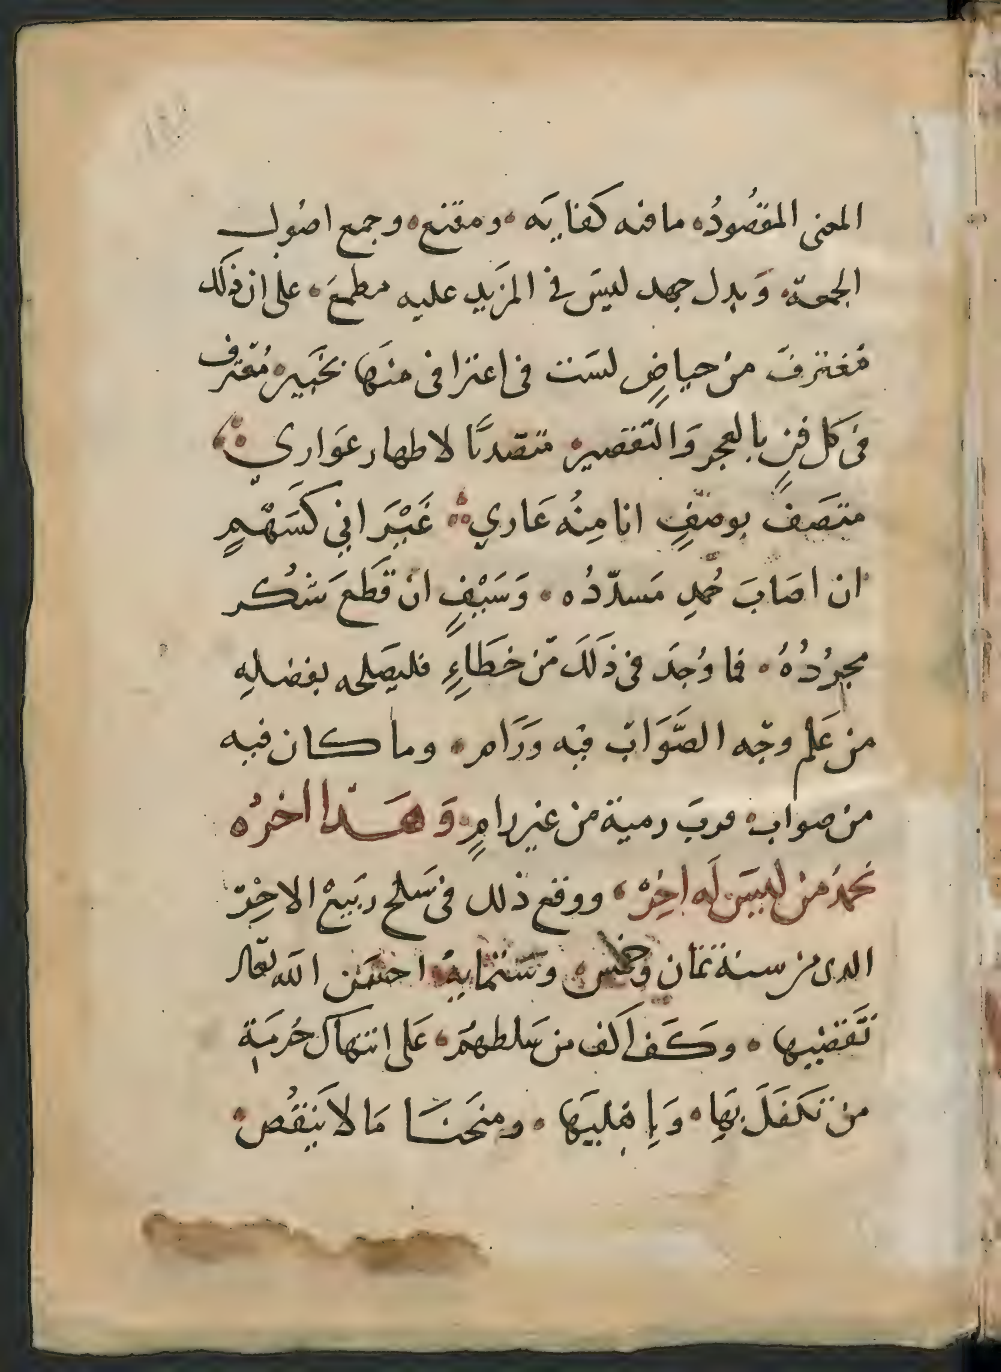 المعنى المقصُودُه ما فيه كفايَه ومقنع وجمع اصُول
الجمعة وَبدل جهد ليسَ في المزيد عليه مطمعَ على ان ذلك
مغترفَ من حياضٍ لسَت في اعترافى منهَا بخَبير مُقترف
فى كل فنٍ بالعجر وَالتقصير متصَدًيا لاطهار عوَاري
متصَف بوصفٍ انا مِنُه عَاري غَيْرَ اني كَسَهْمٍ
ان اصَابَ حُمدِ مَسدّدُه وَسَيْفٍ ان قَطَعَ شكُر
مجرُدُهُ فما وُجدَ فى ذَلكَ مّن خَطَاءٍ فليصَلحه بفضلهِ
من عَلم وجّه الصَّوَابّ فيْه وَرَام وما كان فيه
من صواب فربَ رمية من غير رامٍ وَهَذا اخرُه
نحمدُ من ليسَ لَه اخِرْ ووقع ذلك فى سَلخ ربَيعْ الاخِرّ
الدى من سنة ثمان وخمس وستمايهْ احسَن الله تعَالى
تَقضيْها وكَفَ اكف من سَلطهمُ عَلى انتهاك حُرمَة
من تكفَلَ بهَا وَباهليَها ومنحَنَا مَا لا يَنقُص